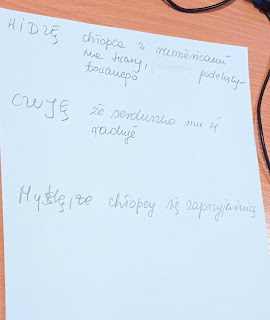 WIDZĘ chłopca z rumieńcami
na twarzy, podekscy-
towanego
CZUJĘ że serduszko mu
raduje
Myślę, że chłopcy się zaprzyjaźnią